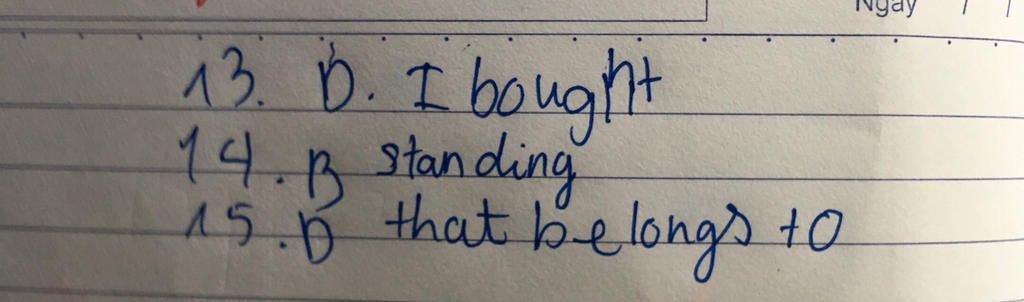 Ngày
13. D. I bought
14. B standing
15. D that belongs to